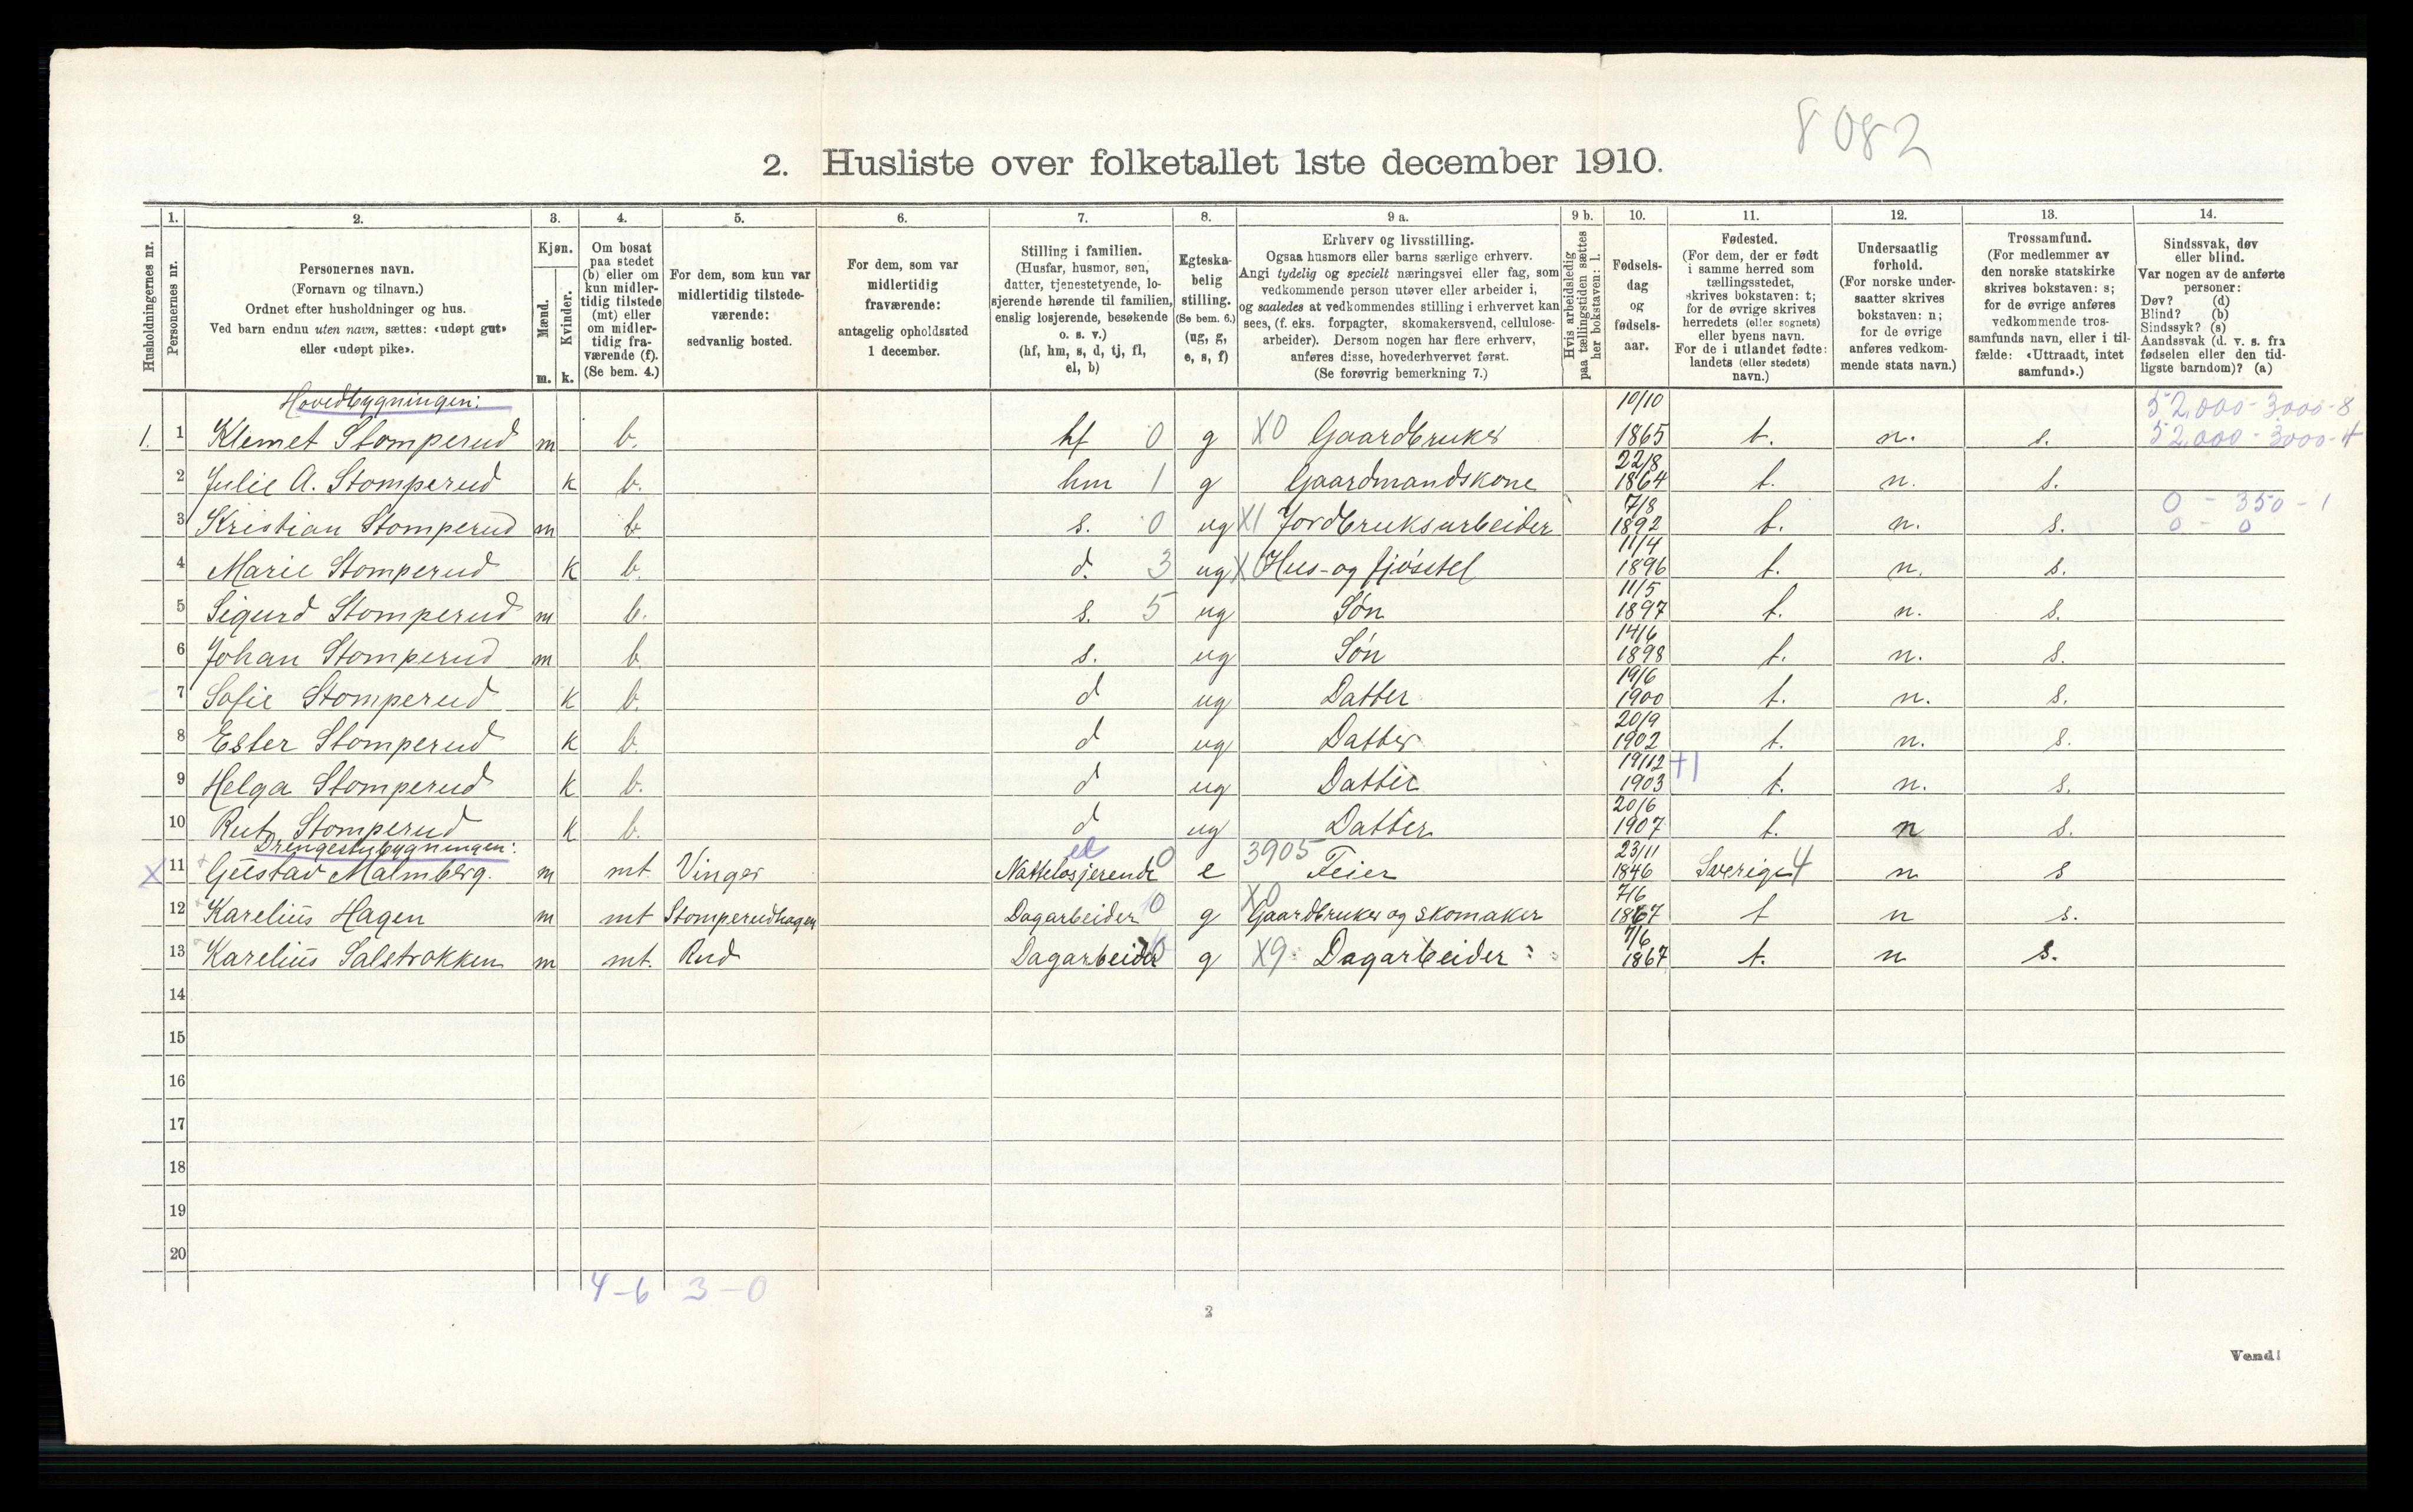 8082
2. Husliste over folketallet 1ste december 1910.
Husholdningernes nr.
1. Personernes nr.
2. Personernes navn.
(Fornavn og tilnavn.)
Ordnet efter husholdninger og hus.
Ved barn endnu uten navn, sættes: «udøpt gut»
eller «udøpt pike».
3. Kjøn.
Mænd. m.
Kvinder. k.
4. Om bosat
paa stedet
(b) eller om
kun midler-
tidig tilstede
(mt) eller
om midler-
tidig fra-
værende (f).
(Se bem. 4.)
5. For dem, som kun var
midlertidig tilstede-
værende:
sedvanlig bosted.
6. For dem, som var
midlertidig
fraværende:
antagelig opholdssted
1 december.
7. Stilling i familien.
(Husfar, husmor, søn,
datter, tjenestetyende, lo-
sjerende hørende til familien,
enslig losjerende, besøkende
o. s. v.)
(hf, hm, s, d, tj, fl,
el, b)
8. Egteska-
belig
stilling.
(Se bem. 6.)
(ug, g,
e, s, f)
9 a. Erhverv og livsstilling.
Ogsaa husmors eller barns særlige erhverv.
Angi tydelig og specielt næringsvei eller fag, som
vedkommende person utøver eller arbeider i,
og saaledes at vedkommendes stilling i erhvervet kan
sees, (f. eks. forpagter, skomakersvend, cellulose-
arbeider). Dersom nogen har flere erhverv,
anføres disse, hovederhvervet først.
(Se forøvrig bemerkning 7.)
9 b. Hvis arbeidsledig
paa tællingstiden sættes
her bokstaven: l.
10. Fødsels-
dag
og
fødsels-
aar.
11. Fødested.
(For dem, der er født
i samme herred som
tællingsstedet,
skrives bokstaven: t;
for de øvrige skrives
herredets (eller sognets)
eller byens navn.
For de i utlandet fødte:
landets (eller stedets)
navn.)
12. Undersaatlig
forhold.
(For norske under-
saatter skrives
bokstaven: n;
for de øvrige
anføres vedkom-
mende stats navn.)
13. Trossamfund.
(For medlemmer av
den norske statskirke
skrives bokstaven: s;
for de øvrige anføres
vedkommende tros-
samfunds navn, eller i til-
fælde: «Uttraadt, intet
samfund».)
14. Sindssvak, døv
eller blind.
Var nogen av de anførte
personer:
Døv? (d)
Blind? (b)
Sindssyk? (s)
Aandssvak (d. v. s. fra
fødselen eller den tid-
ligste barndom)? (a)
Hovedbygningen: 10/10 52,000-3000-8
1. 1 Klemet Stomperud m b. hf 0 g X0 Gaardbruker 1865 t. n. s. 52,000-3000-4
2 Julie A. Stomperud k b. hm 1 g Gaardmandskone 22/8 1864 t. n. s.
3 Kristian Stomperud m b s. 0 ug X1 Jordbruksarbeider 7/8 1892 t. n. s. 0 - 350 - 1
0 - 0
4 Marie Stomperud k b. d. 3 ug X Hus- og fjøsstel 11/4 1896 t. n. s.
5 Sigurd Stomperud m b. s. 5 ug Søn 11/5 1897 t. n. s.
6 Johan Stomperud m b. s. ug Søn 14/6 1898 t. n. s.
7 Sofie Stomperud k b. d ug Datter 19/6 1900 t. n. s.
8 Ester Stomperud k b. d ug Datter 20/9 1902 t. n. s.
9 Helga Stomperud k b. d ug Datter 19/12 1903 +1 t. n. s.
10 Rut Stomperud k b. d ug Datter 20/6 1907 t. n s.
Drengestubygningen:
X 11 Gustav Malmberg. m mt. Vinger Nattelosjerende el 0 e 3905 Feier 23/11 1846 Sverige 4 n s
12 Karelius Hagen m mt Stomperudhagen Dagarbeider 10 g X0 Gaardbruker og skomaker 7/6 1867 t n s.
13 Karelius Salstrokken m mt. Rud Dagarbeider g X9 Dagarbeider 7/6 1867 t. n s.
14
15
16
17
18
19
20
4-6 3-0
2
Vend!